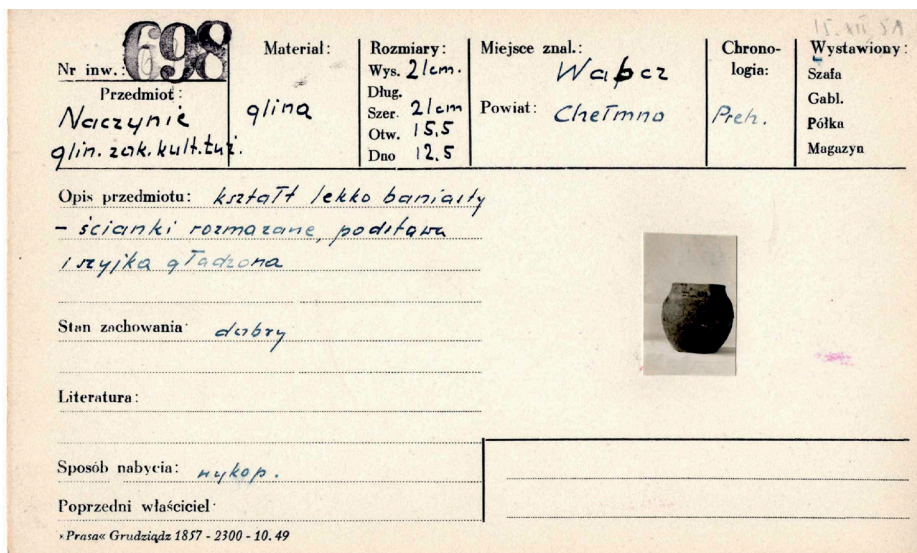 15. XII. 51
Nr inw.: 698
Przedmiot:
Naczynie
glin. zak. kult. łuż.
Materiał:
glina
Rozmiary:
Wys. 21cm.
Dług.
Szer. 21cm
Otw. 15,5
Dno 12.5
Miejsce znal.:
Wabcz
Powiat: Chełmno
Chrono-
logia:
Preh.
Wystawiony:
Szafa
Gabl.
Półka
Magazyn
Opis przedmiotu: kształt lekko baniasty
- ścianki rozmazane, podstawa
i szyjka gładzona
Stan zachowania: dobry
Literatura:
Sposób nabycia: wykop.
Poprzedni właściciel:
»Prasa« Grudziądz 1857 - 2300 - 10. 49